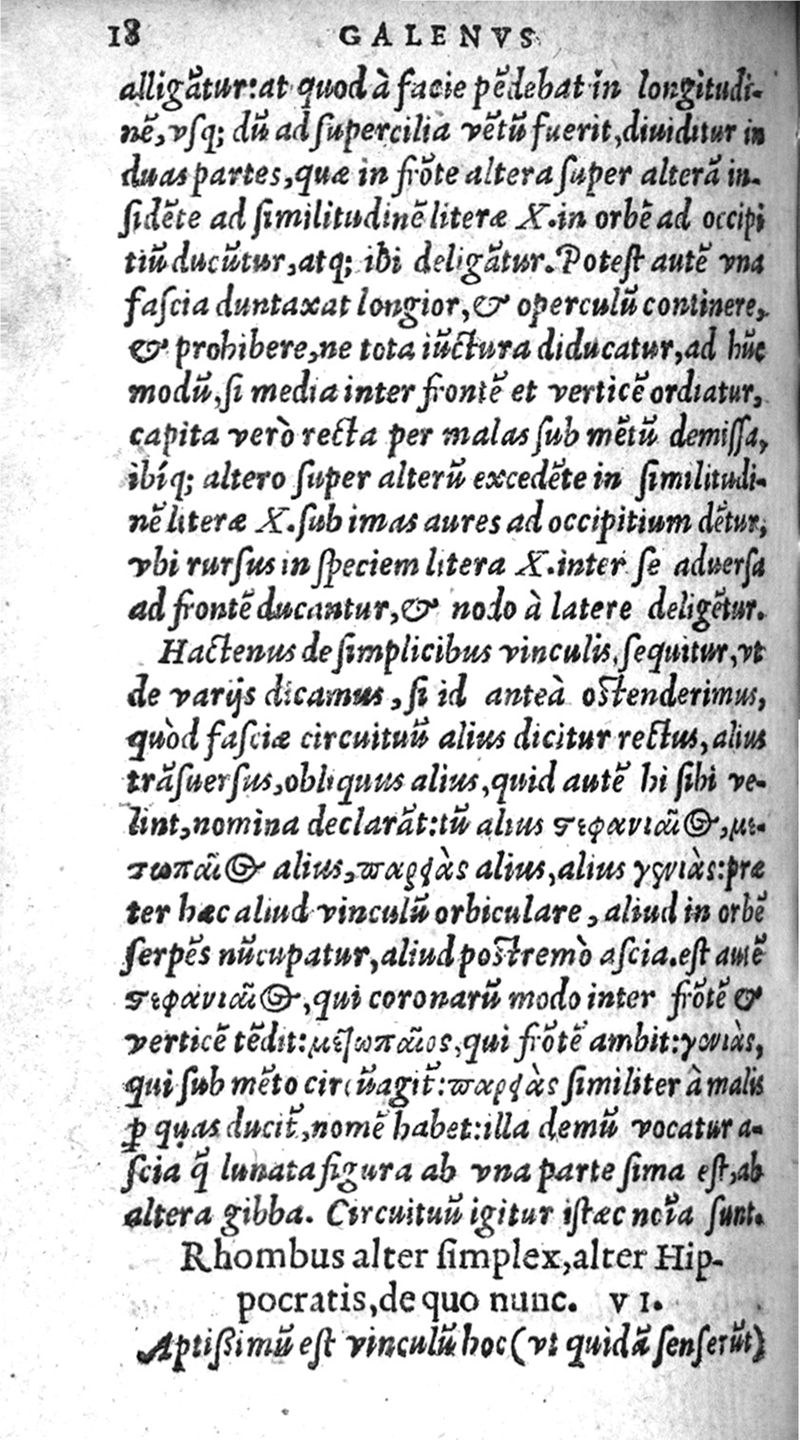 18 GALENVS
alligãtur:at quod à facie pẽdebat in longitudi-
nẽ,vsq; dũ ad supercilia vẽtũ fuerit,diuiditur in
duas partes,quæ in frõte altera super alterã in-
sidẽte ad similitudinẽ literæ X.in orbẽ ad occipi
tiũ ducũtur,atq; ibi deligãtur.Potest autẽ vna
fascia duntaxat longior,& operculũ continere,
& prohibere,ne tota iũctura diducatur,ad hũc
modũ,si media inter frontẽ et verticẽ ordiatur,
capita verò recta per malas sub mẽtũ demissa,
ibíq; altero super alterũ excedẽte in similitudi-
nẽ literæ X.sub imas aures ad occipitium dẽtur,
vbi rursus in speciem litera X.inter se aduersa
ad frontẽ ducantur,& nodo à latere deligẽtur.
Hactenus de simplicibus vinculis,sequitur,vt
de varijs dicamus,si id anteà ostenderimus,
quòd fasciæ circuituũ alius dicitur rectus,alius
trãsuersus,obliquus alius,quid autẽ hi sibi ve-
lint,nomina declarãt:tũ alius στεφανιαῖος,με-
τωπαῖος alius,παρειὰς alius,alius γωνιὰς:præ
ter hæc aliud vinculũ orbiculare,aliud in orbẽ
serpẽs nũcupatur,aliud postremò ascia.est autẽ
στεφανιαῖος,qui coronarũ modo inter frõtẽ &
verticẽ tẽdit:μετωπαῖος,qui frõtẽ ambit:γωνιὰς,
qui sub mẽto circũagit̃:παρειὰς similiter à malis
ꝑ quas ducit̃,nomẽ habet:illa demũ vocatur a-
scia q̃ lunata figura ab vna parte sima est,ab
altera gibba. Circuituũ igitur istæc nota sunt.
Rhombus alter simplex,alter Hip-
pocratis,de quo nunc. VI.
Aptissimũ est vinculũ hoc (vt quidã senserũt)